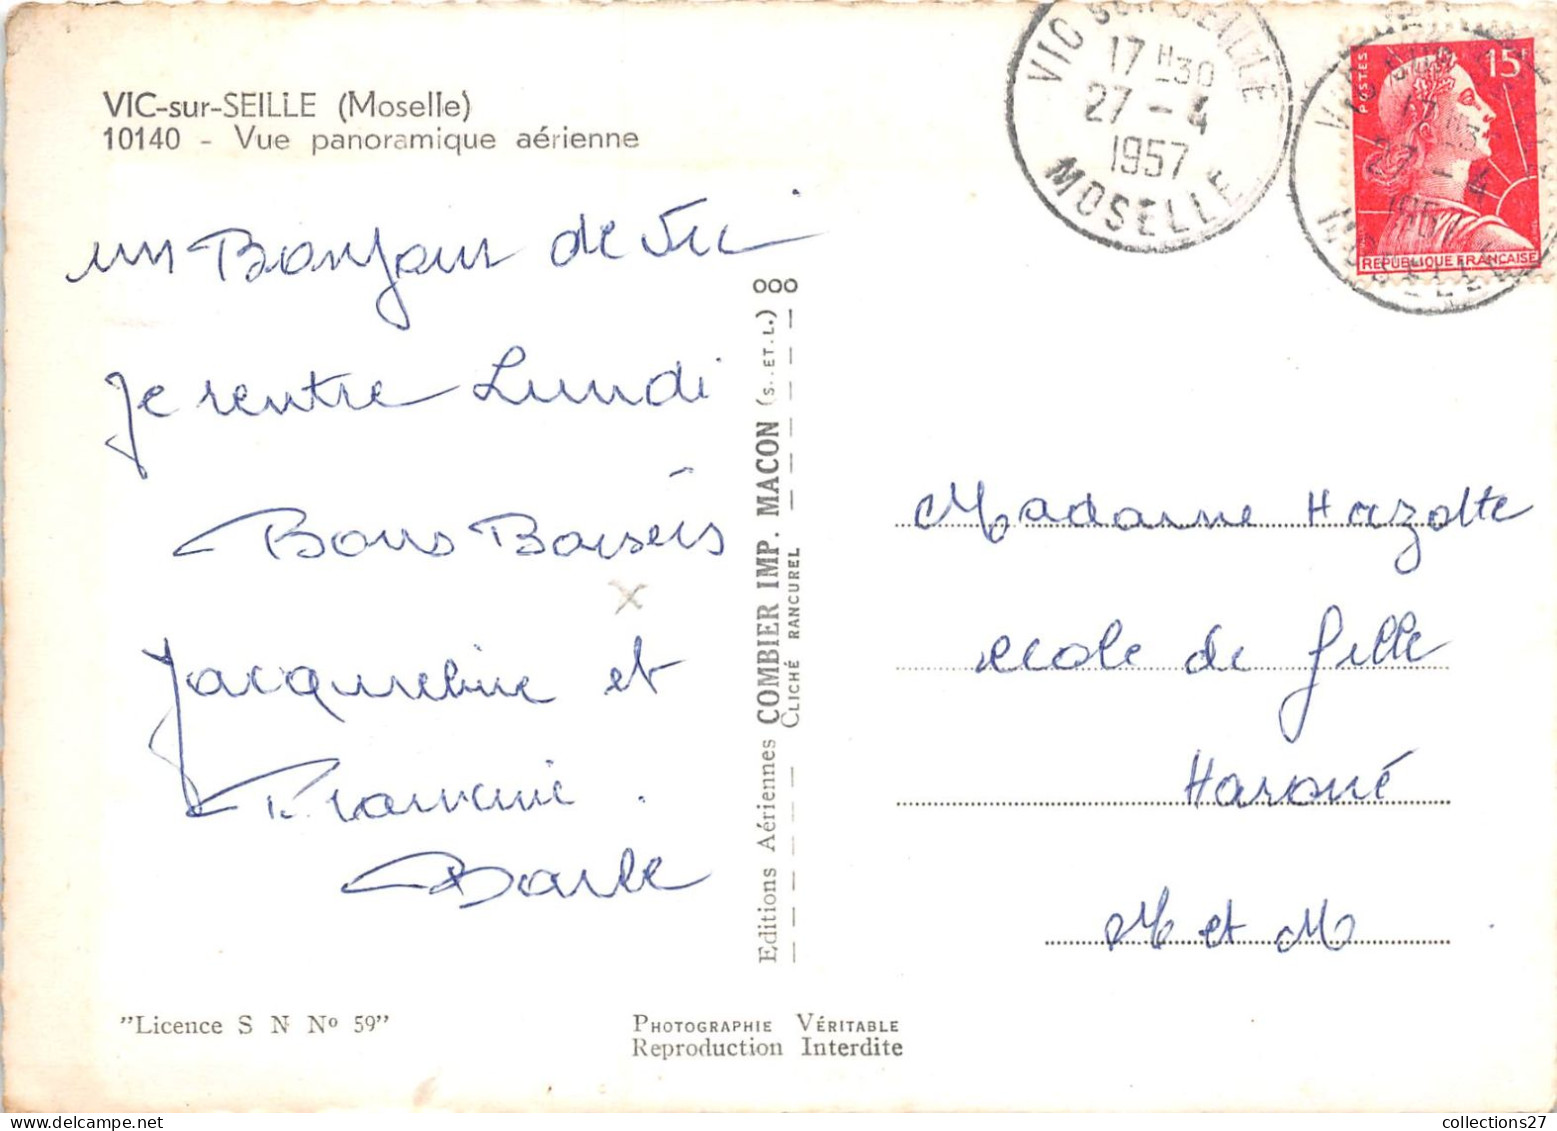 VIC-sur-SEILLE (Moselle)
10140 - Vue panoramique aérienne
un Bonjour de Vic
Je rentre Lundi
Bons Baisers
Jacqueline et
Francine.
VIC SUR SEILLE
17 H 30
27 - 4
1957
MOSELLE
POSTES
15F
REPUBLIQUE FRANÇAISE
VIC SUR SEILLE
17 H 30
27 - 4
1957
MOSELLE
Editions Aériennes COMBIER IMP. MACON (S.ET.L.)
CLICHÉ RANCUREL
Madame Hazotte
école de fille
Haroué
M et M
"Licence S N Nº 59"
PHOTOGRAPHIE VÉRITABLE
Reproduction Interdite
collections27